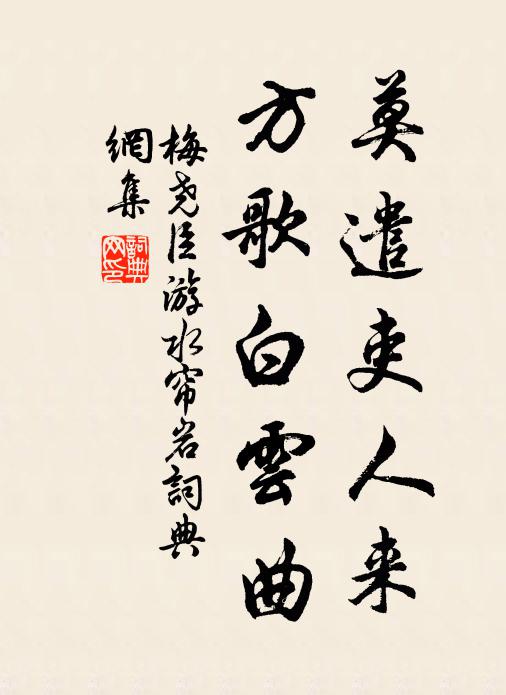 莫遣吏人来
方歌白雲曲
梅尧臣游水帘岩詞典
網集
詞典
网印